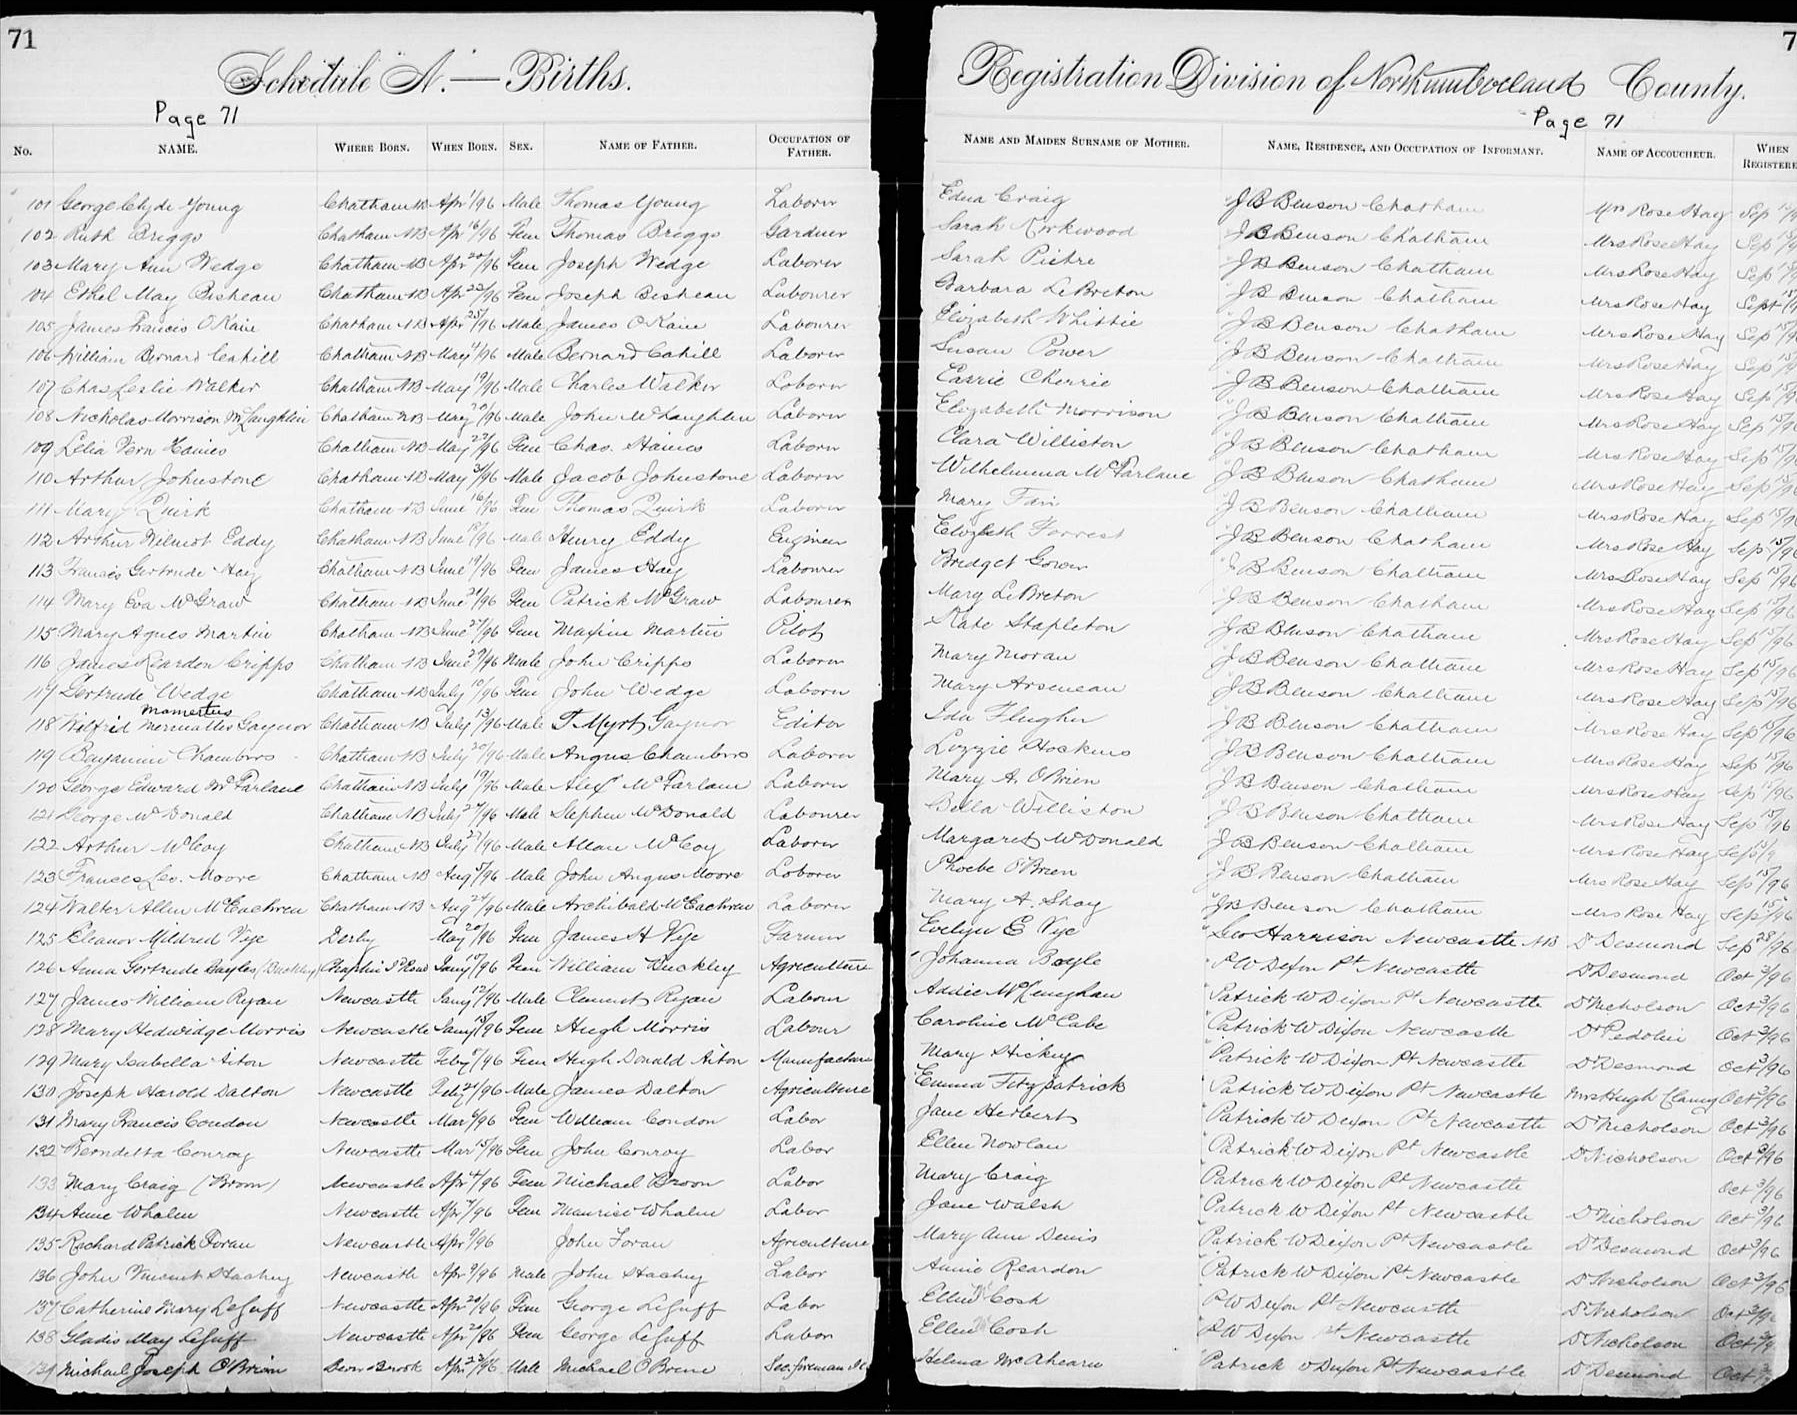 71
Schedule A. — Births.
Page 71
No. NAME. WHERE BORN. WHEN BORN. SEX. NAME OF FATHER. OCCUPATION OF FATHER.
101 George Clyde Young Chatham NB Apr 1/96 Male Thomas Young Laborer
102 Ruth Briggs Chatham NB Apr 16/96 Fem Thomas Briggs Gardner
103 Mary Ann Wedge Chatham NB Apr 20/96 Fem Joseph Wedge Laborer
104 Ethel May Bisheau Chatham NB Apr 22/96 Fem Joseph Bisheau Labourer
105 James Francis O'Kain Chatham NB Apr 25/96 Male James O'Kain Labourer
106 William Bernard Cahill Chatham NB May 4/96 Male Bernard Cahill Laborer
107 Chas Leslie Walker Chatham NB May 19/96 Male Charles Walker Laborer
108 Nicholas Morrison McLaughlin Chatham NB May 20/96 Male John McLaughlin Laborer
109 Lelia Vern Haines Chatham NB May 22/96 Fem Chas. Haines Laborer
110 Arthur Johnstone Chatham NB May 96 Male Jacob Johnstone Laborer
111 Mary J Quirk Chatham NB June 16/96 Fem Thomas Quirk Laborer
112 Arthur Wilmot Eddy Chatham NB June 18/96 Male Henry Eddy Engineer
113 Francis Gertrude Hay Chatham NB June 19/96 Fem James Hay Labourer
114 Mary Eva McGraw Chatham NB June 21/96 Fem Patrick McGraw Labourer
115 Mary Agnes Martin Chatham NB June 27/96 Fem Maxim Martin Pilot
116 James Reardon Cripps Chatham NB June 29/96 Male John Cripps Laborer
117 Gertrude Wedge Chatham NB July 10/96 Fem John Wedge Laborer
Mamertus
118 Wilfrid Gaynor Chatham NB July 13/96 Male T. Myrt Gaynor Editor
119 Benjamin Chambers Chatham NB July 20/96 Male Angus Chambers Laborer
120 George Edward McFarlane Chatham NB July 19/96 Male Alex McFarlane Laborer
121 George McDonald Chatham NB July 24/96 Male Stephen McDonald Labourer
122 Arthur McCoy Chatham NB July 27/96 Male Allan McCoy Laborer
123 Frances Leo. Moore Chatham NB Aug 5/96 Male John Angus Moore Laborer
124 Walter Allen McEachren Chatham NB Aug 24/96 Male Archibald McEachren Laborer
125 Eleanor Mildred Vye Derby May 20/96 Fem James H Vye Farmer
126 Anna Gertrude Bayles (Buckley) Chaplin Jany 10/96 Fem William Buckley Agriculture
127 James William Ryan Newcastle Jany 12/96 Male Clement Ryan Labour
128 Mary Hedwidge Morris Newcastle Jany 18/96 Fem Hugh Morris Labour
129 Mary Isabella Aiton Newcastle Feby 5/96 Fem Hugh Donald Aiton Manufacturer
130 Joseph Harold Dalton Newcastle Feby 21/96 Male James Dalton Agriculture
131 Mary Francis Condon Newcastle Mar 96 Fem William Condon Labor
132 Berndetta Conroy Newcastle Mar 15/96 Fem John Conroy Labor
133 Mary Craig (Broon) Newcastle Apr 4/96 Fem Michael Broon Labor
134 Anne Whalen Newcastle Apr 7/96 Fem Maurice Whalen Labor
135 Richard Patrick Foran Newcastle Apr 9/96 John Foran Agriculture
136 John Vincent Newcastle Apr 9/96 Male John Labor
137 Catherine Mary LeGuff Newcastle Apr 20/96 Fem George LeGuff Labor
138 Gladis May LeGuff Newcastle Apr 20/96 Fem George LeGuff Labor
139 Michael Joseph O'Brien Brook Apr 23/96 Male Michael O'Brien Sec. foreman
7
Registration Division of Northumberland County.
Page 71
NAME AND MAIDEN SURNAME OF MOTHER. NAME, RESIDENCE, AND OCCUPATION OF INFORMANT. NAME OF ACCOUCHEUR. WHEN REGISTERE
Edna Craig J B Benson Chatham Mrs Rose Hay Sep
Sarah Kirkwood J B Benson Chatham Mrs Rose Hay Sep 15/9
Sarah Pietre J B Benson Chatham Mrs Rose Hay Sep
Barbara LeBreton J B Benson Chatham Mrs Rose Hay Sept 15/
Elizabeth Whittie J B Benson Chatham Mrs Rose Hay Sep 15/9
Susan Power J B Benson Chatham Mrs Rose Hay Sep 15/
Carrie Cherrie J B Benson Chatham Mrs Rose Hay Sep 15/9
Elizabeth Morrison J B Benson Chatham Mrs Rose Hay Sep 15/9
Clara Williston J B Benson Chatham Mrs Rose Hay Sep 15/9
Wilhelmina McFarlane J B Benson Chatham Mrs Rose Hay Sep 15/96
Mary J B Benson Chatham Mrs Rose Hay Sep 15/96
Elizabeth Forrest J B Benson Chatham Mrs Rose Hay Sep 15/96
Bridget Gower J B Benson Chatham Mrs Rose Hay Sep 15/96
Mary LeBreton J B Benson Chatham Mrs Rose Hay Sep 15/96
Kate Stapleton J B Benson Chatham Mrs Rose Hay Sep 15/96
Mary Moran J B Benson Chatham Mrs Rose Hay Sep 15/96
Mary Arseneau J B Benson Chatham Mrs Rose Hay Sep 15/96
Ida Flugher J B Benson Chatham Mrs Rose Hay Sep 15/96
Lizzie Hockins J B Benson Chatham Mrs Rose Hay Sep 15/96
Mary A. O'Brien J B Benson Chatham Mrs Rose Hay Sep 96
Bella Williston J B Benson Chatham Mrs Rose Hay Sep 15/96
Margaret McDonald J B Benson Chatham Mrs Rose Hay Sep
Phoebe O'Brien J B Benson Chatham Mrs Rose Hay Sep 15/96
Mary A. Shay J B Benson Chatham Mrs Rose Hay Sep 15/96
Evelyn E Vye Geo Harrison Newcastle NB Dr Desmond Sep 28/96
Johanna Boyle P W Dixon Pt Newcastle Dr Desmond Oct 3/96
Addie McKeneghan Patrick W Dixon Pt Newcastle Dr Nicholson Oct 3/96
Caroline McCabe Patrick W Dixon Newcastle Dr Pedolin Oct 3/96
Mary Hickey Patrick W Dixon Pt Newcastle Dr Desmond Oct 3/96
Emma Fitzpatrick Patrick W Dixon Pt Newcastle Mrs Hugh Clancy Oct 3/96
Jane Herbert Patrick W Dixon Pt Newcastle Dr Nicholson Oct 3/96
Ellen Nowlan Patrick W Dixon Pt Newcastle Dr Nicholson Oct 3/96
Mary Craig Patrick W Dixon Pt Newcastle Oct 3/96
Jane Walsh Patrick W Dixon Pt Newcastle Dr Nicholson Oct 3/96
Mary Ann Denis Patrick W Dixon Pt Newcastle Dr Desmond Oct 3/96
Annie Reardon Patrick W Dixon Pt Newcastle Dr Nicholson Oct 3/96
Ellen Cosh P W Dixon Pt Newcastle Dr Nicholson Oct 3/9
Ellen Cosh P W Dixon Pt Newcastle Dr Nicholson Oct 3/9
Helena McAhearn Patrick W Dixon Pt Newcastle Dr Desmond Oct 3/